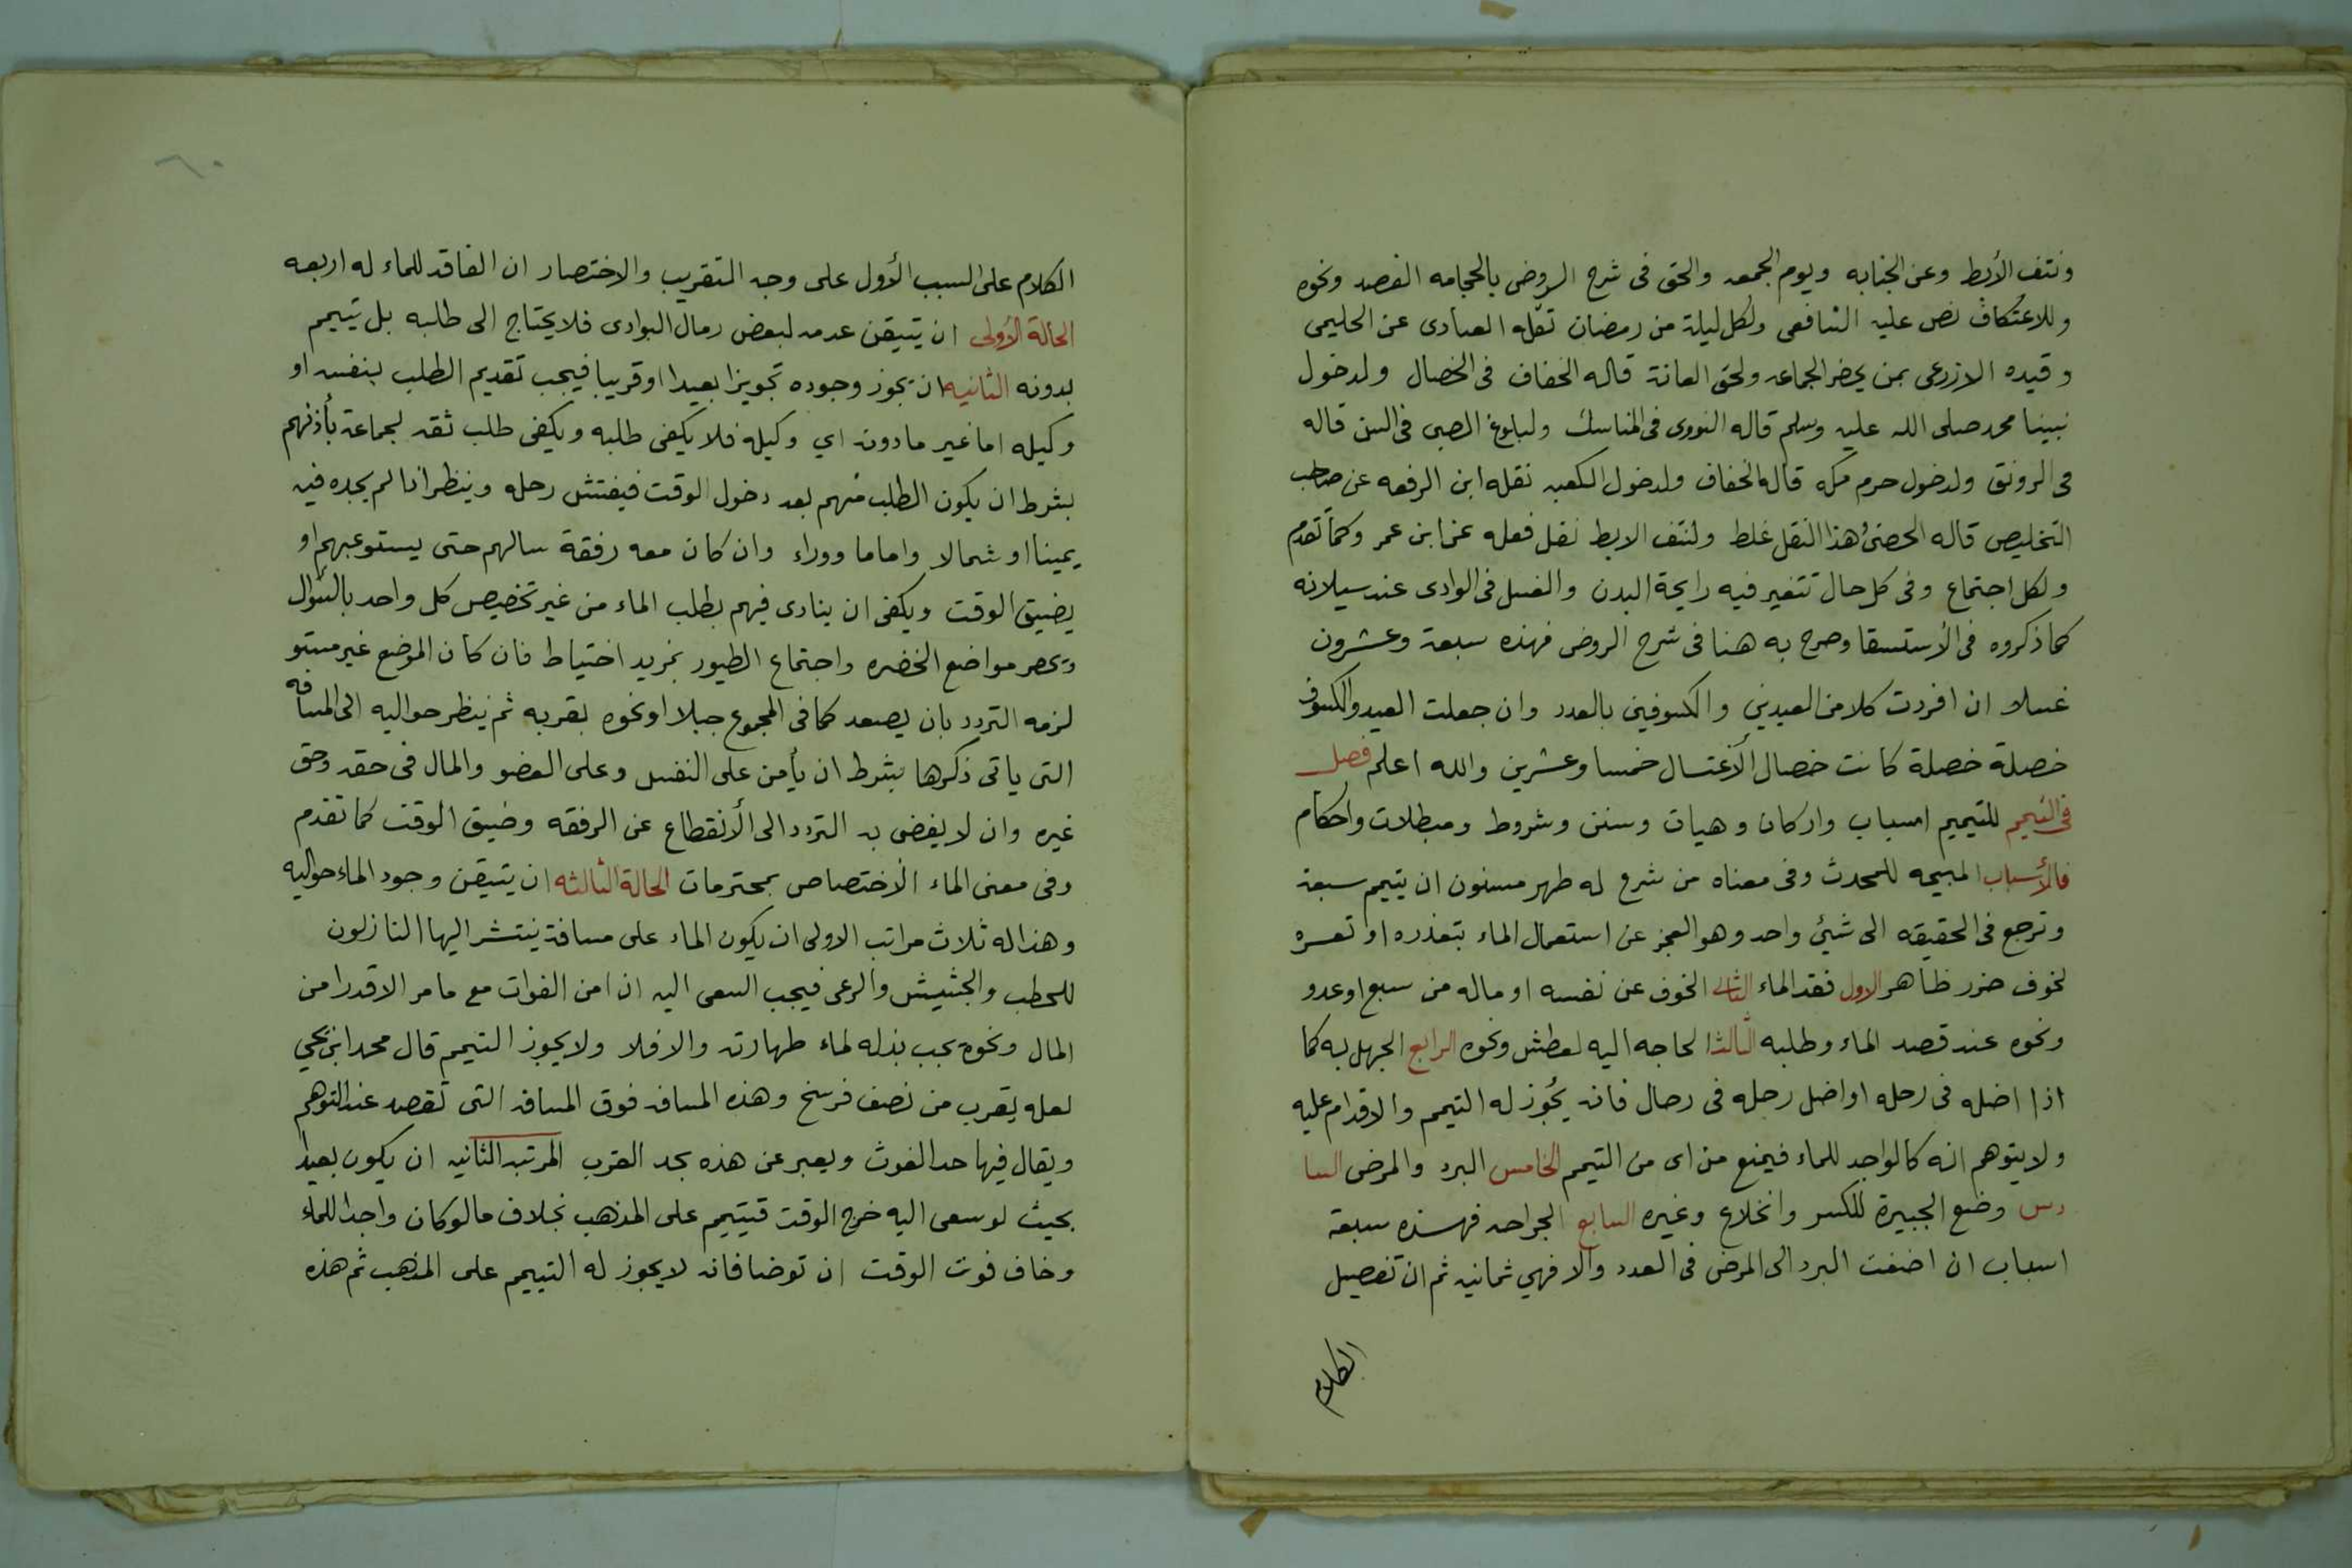 ونتف الأبط وعن الجنابه ويوم الجمعه والحق فى شرح الروض بالحجامه الفصد ونحوه
وللاعتكاف نص عليه الشافعى ولكل ليلة من رمضان نقله العبادى عن الحليمى
وقيده الازرعى بمن يحضر الجماعه ولحق العانة قاله الخفاف فى الخصال ولدخول
نبينا محمد صلى الله عليه وسلم قاله النووى فى المناسك ولبلوغ الصبى فى السن قاله
فى الرونق ولدخول حرم مكه قاله الخفاف ولدخول الكعبه نقله ابن الرفعه عن صاحب
التخليص قاله الحصنى هذا النقل غلط ولنتف الابط نقل فعله عن ابن عمر وكما تقدم
ولكل اجتماع وفى كل حال تتغير فيه رايحة البدن والغسل فى الوادى عند سيلانه
كما ذكروه فى الأستسقا وصرح به هنا فى شرح الروض فهذه سبعة وعشرون
غسلا ان افردت كلا من العيدين والكسوفين بالعدد وان جعلت العيد والكسوف
خصلة خصلة كانت خصال الأغتسال خمسا وعشرين والله اعلم فصل
فى التيمم للتيمم اسباب واركان وهيات وسنن وشروط ومبطلات واحكام
فالأسباب المبيحه للمحدث وفى معناه من شرع له طهر مسنون ان يتيمم سبعة
وترجع فى الحقيقه الى شئ واحد وهو العجز عن استعمال الماء بتعذره او تعسره
لخوف ضرر ظاهر الاول فقد الماء الثانى الخوف عن نفسه او ماله من سبع او عدو
ونحوه عند قصد الماء وطلبه الثالث الحاجه اليه لعطش ونحوه الرابع الجهل به كما
اذا اضله فى رحله او اضل رحله فى رحال فانه يجُوز له التيمم والاقدام عليه
ولا يتوهم انه كالواجد للماء فيمنع من اى من التيمم الخامس البرد والمرض السا
دس وضع الجبيرة للكسر وانخلاع وغيره السابع الجراحه فهذه سبعة
اسباب ان اضفت البرد الى المرض فى العدد والا فهي ثمانيه ثم ان تفصيل
الكلام
٦٠
الكلام على السبب الأول على وجه التقريب والاختصار ان الفاقد للماء له اربعه
الحالة الأولى ان يتيقن عدمه لبعض رمال البوادى فلا يحتاج الى طلبه بل يتيمم
بدونه الثانيه ان يجوز وجوده تجويزا بعيدا او قريبا فيجب تقديم الطلب بنفسه او
وكيله اما غير مادونه اي وكيله فلا يكفى طلبه ويكفى طلب ثقه لجماعة بأذنهم
بشرط ان يكون الطلب منهم بعد دخول الوقت فيفتش رحله وينظر اذا لم يجده فيه
يمينا او شمالا واماما ووراء وان كان معه رفقة سالهم حتى يستوعبهم او
يضيق الوقت ويكفى ان ينادى فيهم بطلب الماء من غير تخصيص كل واحد بالسؤال
ويحصر مواضع الخضره واجتماع الطيور بمزيد احتياط فان كان الموضع غير مستو
لزمه التردد بان يصعد كما فى المجموع جبلا او نحوه بقربه ثم ينظر حواليه الى المسافه
التى ياتى ذكرها بشرط ان يأمن على النفس وعلى العضو والمال فى حقه وحق
غيره وان لا يفضى به التردد الى الأنقطاع عن الرفقه وضيق الوقت كما تقدم
وفى معنى الماء الاختصاص بمحترمات الحالة الثالثه ان يتيقن وجود الماء حواليه
وهذا له ثلاث مراتب الاولى ان يكون الماء على مسافة ينتشر اليها النازلون
للحطب والحشيش والرعى فيجب السعى اليه ان امن الفوات مع ما مر الا قدرا من
المال ونحوه يجب بذله لماء طهارته والا فلا ولا يجوز التيمم قال محمد ابن يحيي
لعله يقرب من نصف فرسخ وهذه المسافه فوق المسافه التى تقصد عند التوهم
ويقال فيها حد الغوث ويعبر عن هذه بحد القرب المرتبه الثانيه ان يكون بعيدا
بحيث لو سعى اليه خرج الوقت فيتيمم على المذهب بخلاف ما لو كان واجدا للماء
وخاف فوت الوقت ان توضا فانه لا يجوز له التيمم على المذهب ثم هذه